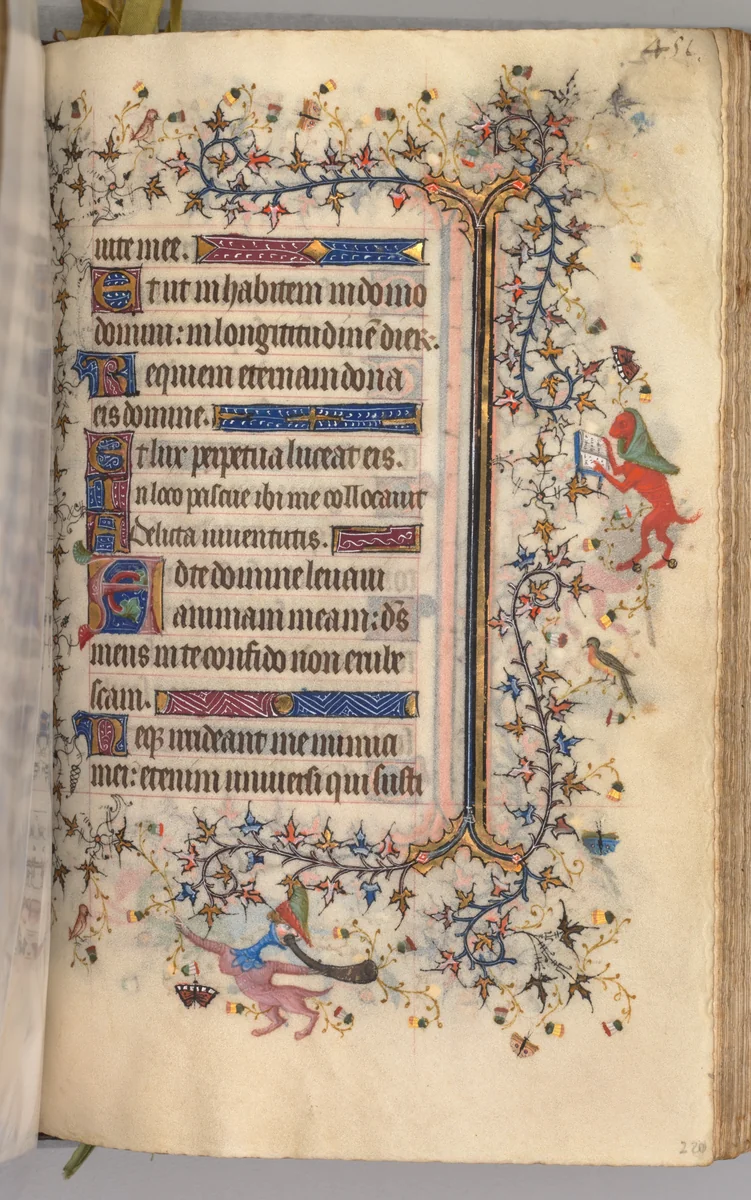 456.
uite mee.
Et ut inhabitem in domo
domini: in longitudinē dieꝝ.
Requiem eternam dona
eis domine.
Et lux perpetua luceat eis.
In loco pascue ibi me collocauit
Delicta iuuentutis.
Ad te domine leuaui
animam meam: dꝰs
meus in te confido non erube
scam.
Neqꝫ irrideant me inimici
mei: etenim uniuersi qui susti
220